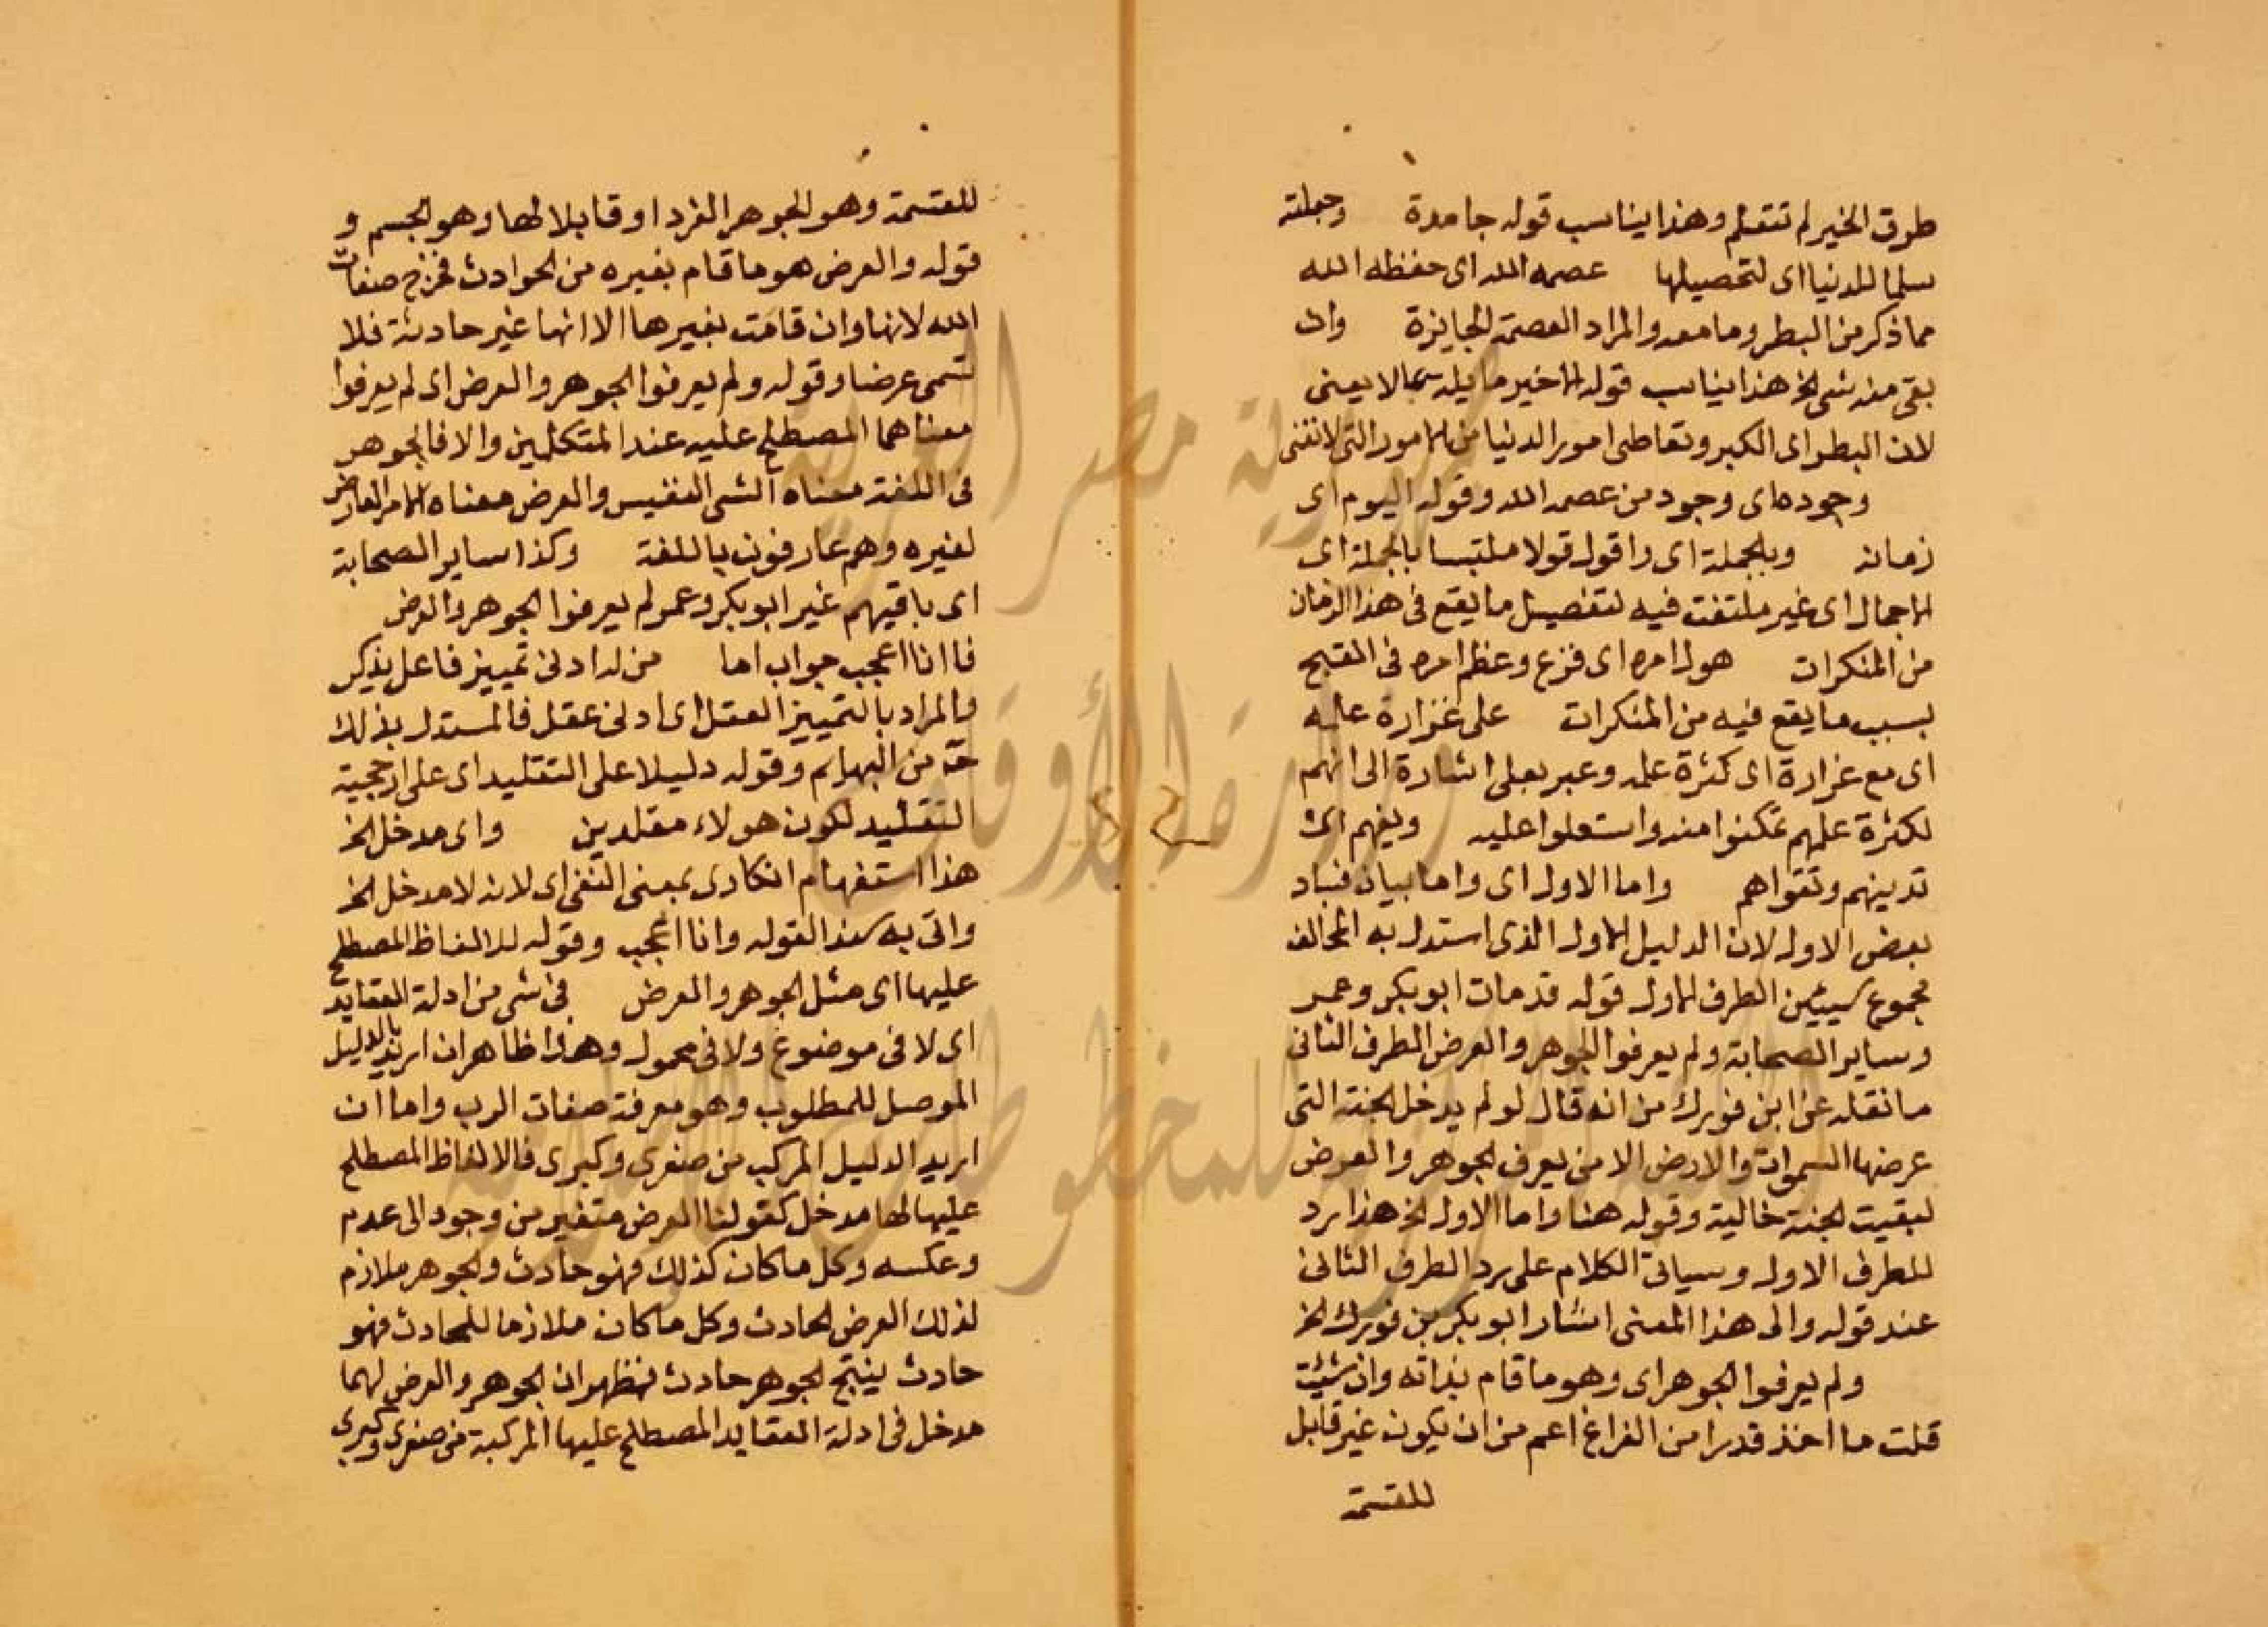 طرق الخير لم تتعلم وهذا يناسب قوله جامدة وجعلته
سلما للدنيا اى لتحصيلها عصمه الله اى حفظه الله
مما ذكر من البطر وما معه والمراد العصمة الجايزة وان
بقى منه شى الخ هذا يناسب قوله لا خير ما يلد مما لا يعنى
لان البطر اى الكبر وتعاطى امور الدنيا من الامور التى لا تغنى
وجوده اى وجود من عصمه الله وقوله اليوم اى
زمانه وبالجملة اى واقول قولا ملتبسا بالجملة اى
الاجمال اى غير ملتفت فيه لتفصيل ما يقع فى هذا الزمان
من المنكرات هول امره اى فزع وعظم امره فى القبح
بسبب ما يقع فيه من المنكرات على غزارة علمه
اى مع غزارة اى كثرة علمه وعبر بعلى اشارة الى انهم
لكثرة علمهم تمكنوا منه واستعلوا عليه ويفهم اى
تدينهم وتقواهم واما الاول اى واما بيان فساد
بعض الاول لان الدليل الاول الذى استدل به المخالف
مجموع شيئين الطرف الاول قوله قد مات ابو بكر وعمر
وساير الصحابة ولم يعرفوا الجوهر والعرض الطرف الثانى
ما نقله عن ابن فورك من انه قال لو لم يدخل الجنة التى
عرضها السموات والارض الا من يعرف الجوهر والعرض
لبقيت الجنة خالية وقوله هنا واما الاول الخ هذا رد
للطرف الاول وسياتى الكلام على رد الطرف الثانى
عند قوله والى هذا المعنى اشار ابو بكر بن فورك الخ
ولم يعرفوا الجوهر اى وهو ما قام بذاته وان شئت
قلت ما اخذ قدرا من الفراغ اعم من ان يكون غير قابل
للقسمة
للقسمة وهو الجوهر الفرد او قابلا لها وهو الجسم و
قوله والعرض هو ما قام بغيره من الحوادث فخرج صفات
الله لانها وان قامت بغيرها الا انها غير حادثة فلا
تسمى عرضا وقوله ولم يعرفوا الجوهر والعرض اى لم يعرفوا
معناهما المصطلح عليه عند المتكلمين والا فالجوهر
فى اللغة معناه الشى النفيس والعرض معناه الامر العارض
لغيره وهم عارفون باللغة وكذا ساير الصحابة
اى باقيهم غير ابو بكر وعمر لم يعرفوا الجوهر والعرض
فانا اعجب جواب اما من له ادنى تمييز فاعل يذكر
والمراد بالتمييز العقل اى ادنى عقل فالمستدل بذلك
من البهايم وقوله دليلا على التقليد اى على ارجحية
التقليد لكون هولاء مقلدين واى مدخل الخ
هذا استفهام انكارى بمعنى النفى اى لانه لا مدخل الخ
واتى به سندا لقوله وانا اعجب وقوله للالفاظ المصطلح
عليها اى مثل الجوهر والعرض فى شى من ادلة العقايد
اى لا فى موضوع ولا فى محمول وهذا ظاهر ان اريد بالدليل
الموصل للمطلوب وهو معرفة صفات الرب واما ان
اريد الدليل المركب من صغرى وكبرى فالالفاظ المصطلح
عليها لها مدخل كقولنا العرض متغير من وجود الى عدم
وعكسه وكل ما كان كذلك فهو حادث والجوهر ملازم
لذلك العرض الحادث وكل ما كان ملازما للحادث فهو
حادث ينتج الجوهر حادث فظهر ان الجوهر والعرض لهما
مدخل فى ادلة العقايد المصطلح عليها المركبة من صغرى وكبرى
جمهورية مصر العربية
وزارة الأوقاف